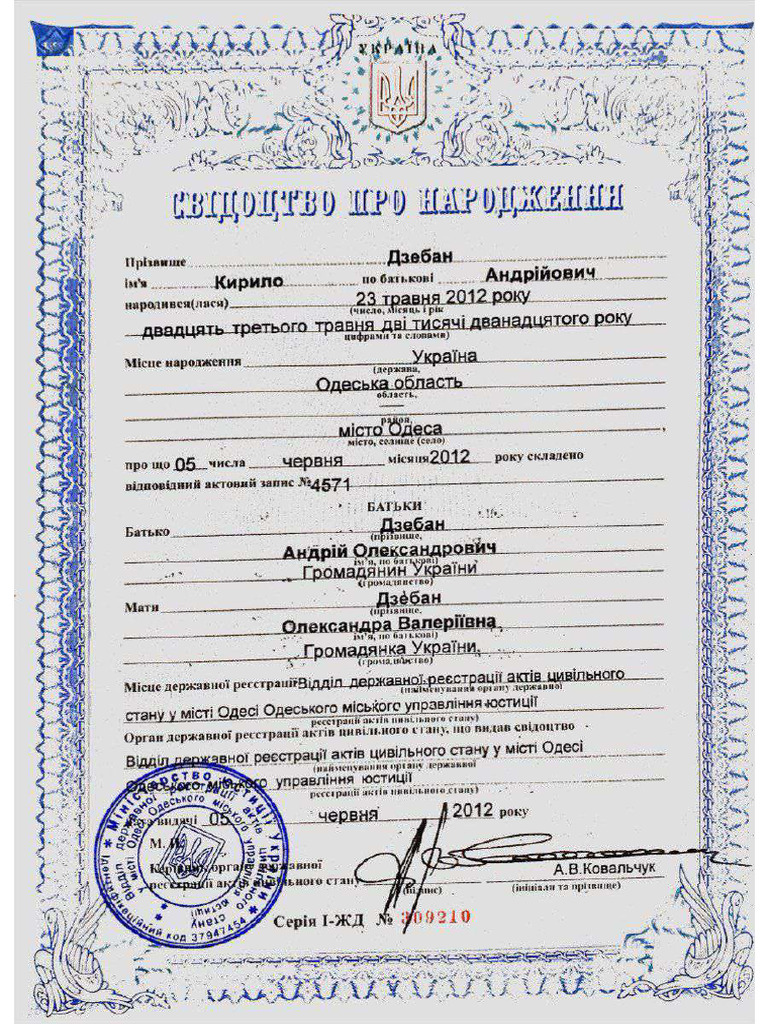 УКРАЇНА
СВІДОЦТВО ПРО НАРОДЖЕННЯ
Прізвище Дзебан
ім'я Кирило по батькові Андрійович
народився(лася) 23 травня 2012 року
(число, місяць і рік
двадцять третього травня дві тисячі дванадцятого року
цифрами та словами)
Місце народження Україна
(держава,
Одеська область
область,
район,
місто Одеса
місто, селище (село)
про що 05 числа червня місяця 2012 року складено
відповідний актовий запис № 4571
БАТЬКИ
Батько Дзебан
(прізвище,
Андрій Олександрович
ім'я, по батькові)
Громадянин України
(громадянство)
Мати Дзебан
(прізвище,
Олександра Валеріївна
ім'я, по батькові)
Громадянка України
(громадянство)
Місце державної реєстрації Відділ державної реєстрації актів цивільного
(найменування органу державної
стану у місті Одесі Одеського міського управління юстиції
реєстрації актів цивільного стану)
Орган державної реєстрації актів цивільного стану, що видав свідоцтво
Відділ державної реєстрації актів цивільного стану у місті Одесі
(найменування органу державної
Одеського міського управління юстиції
реєстрації актів цивільного стану)
Дата видачі 05 червня 2012 року
М. П.
Керівник органу державної
реєстрації актів цивільного стану
А.В.Ковальчук
(підпис) (ініціали та прізвище)
Серія І-ЖД № 309210
Міністерство юстиції України
Ідентифікаційний код 37947454
Відділ державної реєстрації актів цивільного стану у
місті Одесі Одеського міського управління юстиції